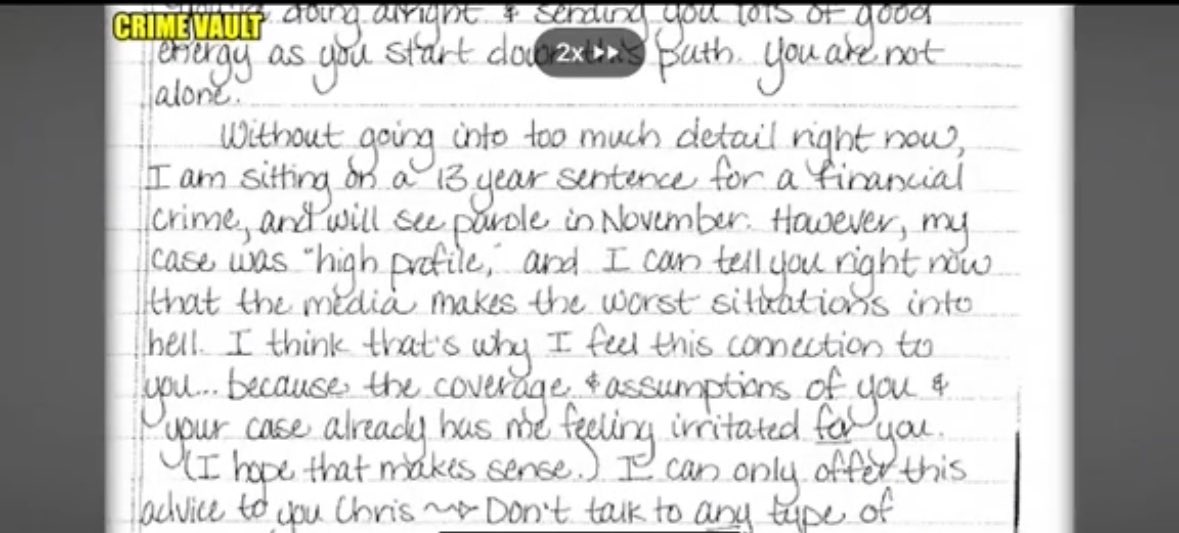 you're doing alright & sending you lots of good
CRIME VAULT
energy as you start down this path. You are not
2x
alone.
Without going into too much detail right now,
I am sitting on a 13 year sentence for a financial
crime, and will see parole in November. However, my
case was "high profile," and I can tell you right now
that the media makes the worst situations into
hell. I think that's why I feel this connection to
you... because the coverage & assumptions of you &
your case already has me feeling irritated for you.
(I hope that makes sense.) I can only offer this
advice to you Chris ~> Don't talk to any type of